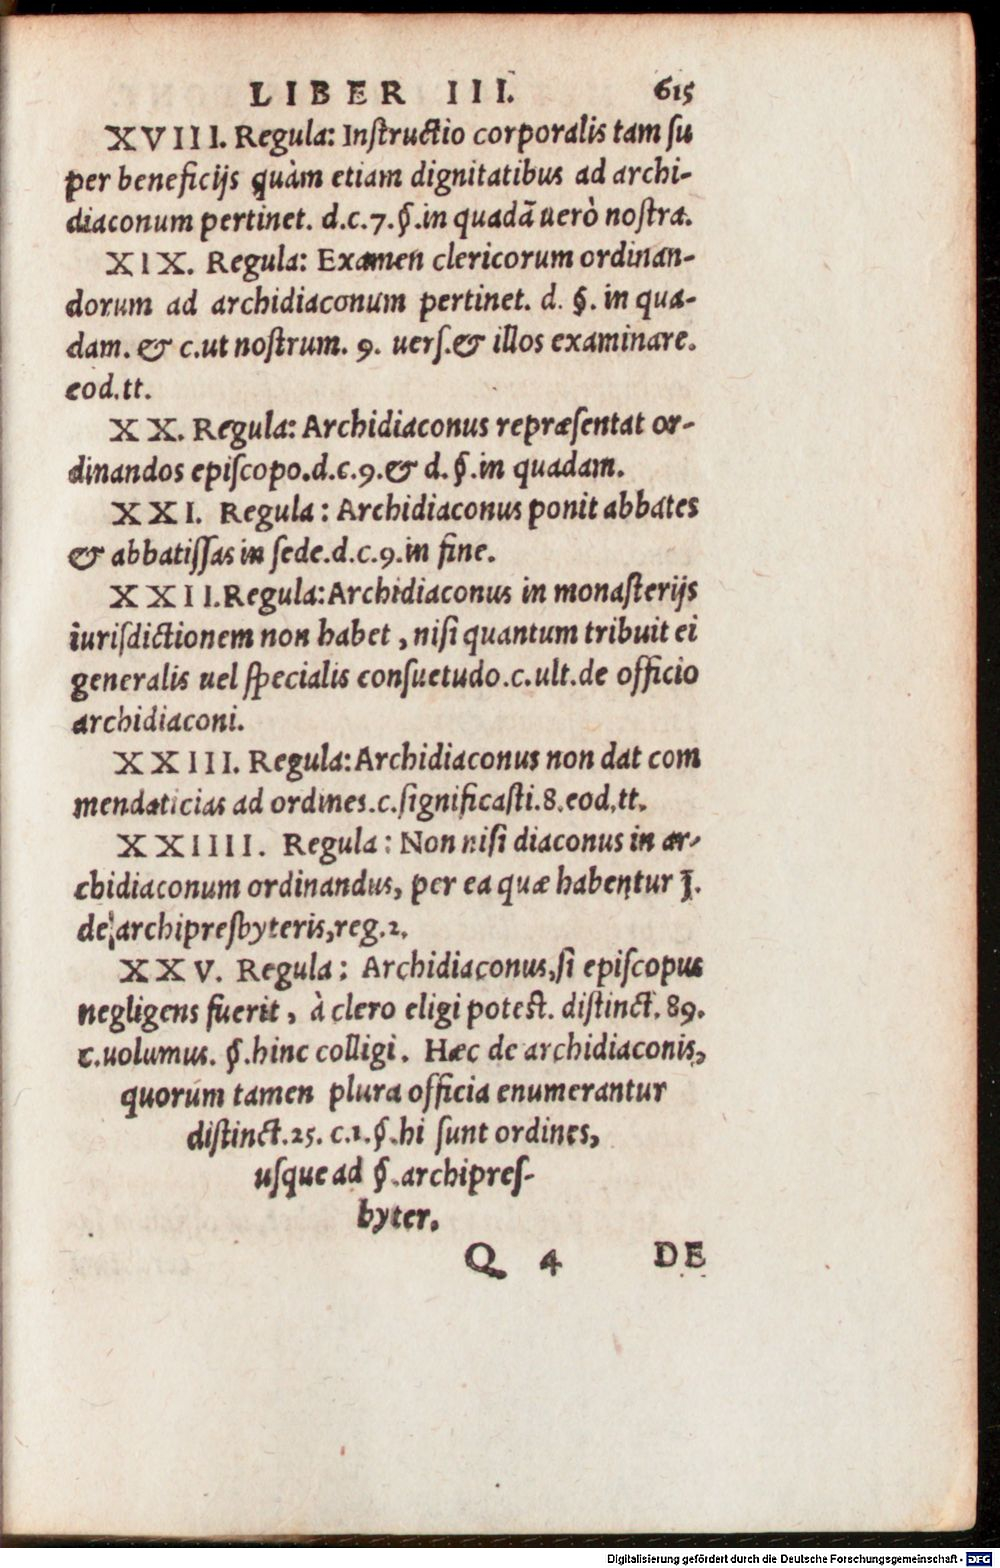 LIBER III. 615
XVIII. Regula: Inſtructio corporalis tam ſu
per beneficijs quàm etiam dignitatibus ad archi-
diaconum pertinet. d.c.7.§.in quadã uerò noſtra.
XIX. Regula: Examen clericorum ordinan-
dorum ad archidiaconum pertinet. d. §. in qua-
dam. & c.ut noſtrum. 9. uerſ.& illos examinare.
eod.tt.
XX. Regula: Archidiaconus repræſentat or-
dinandos epiſcopo.d.c.9.& d.§.in quadam.
XXI. Regula: Archidiaconus ponit abbates
& abbatiſſas in ſede.d.c.9.in fine.
XXII.Regula:Archidiaconus in monaſterijs
iuriſdictionem non habet, niſi quantum tribuit ei
generalis uel ſpecialis conſuetudo.c.ult.de officio
archidiaconi.
XXIII. Regula:Archidiaconus non dat com
mendaticias ad ordines.c.ſignificaſti.8.eod.tt.
XXIIII. Regula: Non niſi diaconus in ar-
chidiaconum ordinandus, per ea quæ habentur J.
de archipresbyteris,reg.2.
XXV. Regula: Archidiaconus,ſi epiſcopus
negligens fuerit, à clero eligi poteſt. diſtinct. 89.
c.uolumus. §.hinc colligi. Hæc de archidiaconis,
quorum tamen plura officia enumerantur
diſtinct.25. c.1.§.hi ſunt ordines,
uſque ad §.archipreſ-
byter.
Q 4 DE
Digitalisierung gefördert durch die Deutsche Forschungsgemeinschaft - DFG